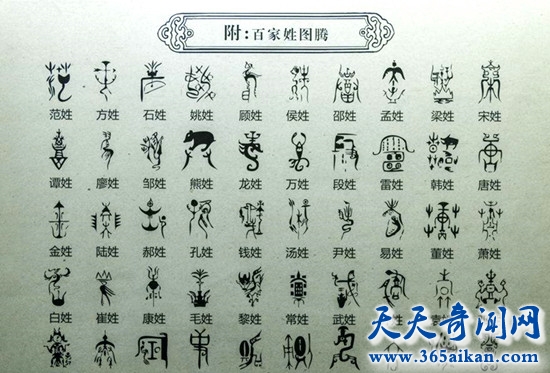 附:百家姓图腾
范姓 方姓 石姓 姚姓 顾姓 侯姓 邵姓 孟姓 梁姓 宋姓
谭姓 廖姓 邹姓 熊姓 龙姓 万姓 段姓 雷姓 韩姓 唐姓
金姓 陆姓 郝姓 孔姓 钱姓 汤姓 尹姓 易姓 董姓 萧姓
白姓 崔姓 康姓 毛姓 黎姓 常姓 武姓 姓
天天奇闻网
www.365aikan.com